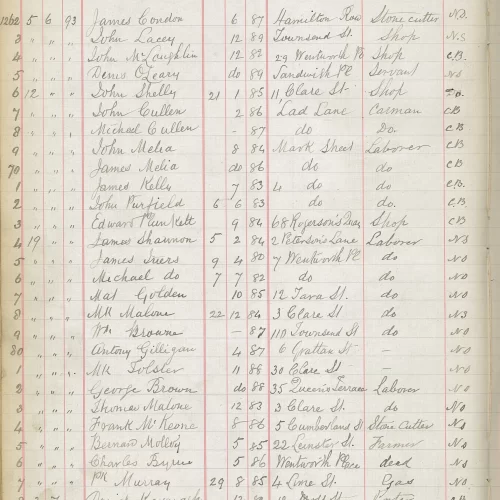 1262 5 6 93 James Condon 6 87 Hamilton Row Stone cutter N.S.
3 " " " John Lacey 12 89 Townsend St. Shop N.S
4 " " " John McLoughlin 12 82 29 Wentworth Pl Shop C.B.
5 " " " Denis O'Leary do 89 Sandwith Pl Servant NS
6 12 " " John Shelly 21 1 85 11 Clare St. Shop
7 " " " John Cullen 2 86 Lad Lane Carman CB
8 " " " Michael Cullen - 87 do Do. CB
9 " " " John Melia 8 84 Mark Street Laborer CB
70 " " " James Melia do 86 do do. CB
1 " " " James Kelly 7 83 4 do do CB.
2 " " " John Purfield 6 6 83 do do. CB
3 " " " Edward Plunkett 9 84 68 Rogerson's Quay Shop CB
4 19 " " James Shannon 5 2 84 2 Peterson's Lane Laborer NS
5 " " " James 9 4 80 7 Wentworth Pl do NS
6 " " " Michael do 7 7 82 do do. NS
7 " " " Mat Golden 10 85 12 Tara St. do NS
8 " " " Ml Malone 22 12 84 3 Clare St do NS
9 " " " Wm Browne - 87 110 Townsend St do NS
80 " " " Antony Gilligan 4 87 6 Grattan St - NS
1 " " " 11 88 30 Clare St - NS
2 " " " George Brown do 88 35 Queen's Terrace Laborer NS
3 " " " Thomas Malone 12 83 3 Clare St. do NS
4 " " " Frank McKeone 8 86 5 Cumberland St Stone Cutter NS
5 " " " Bernard Molloy 5 85 22 Leinster St. Farmer NS
6 " " " Charles Byrne 5 86 Wentworth Place dead NS
7 " " " Murray 29 8 85 4 Lime St. Gas NS